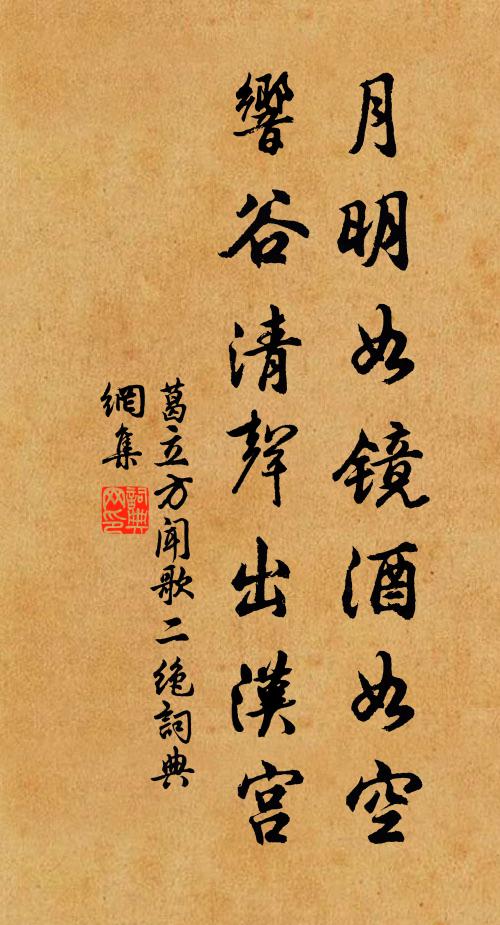 月明如镜酒如空
響谷清聲出漢宫
葛立方闻歌二绝詞典
網集
詞典
网印